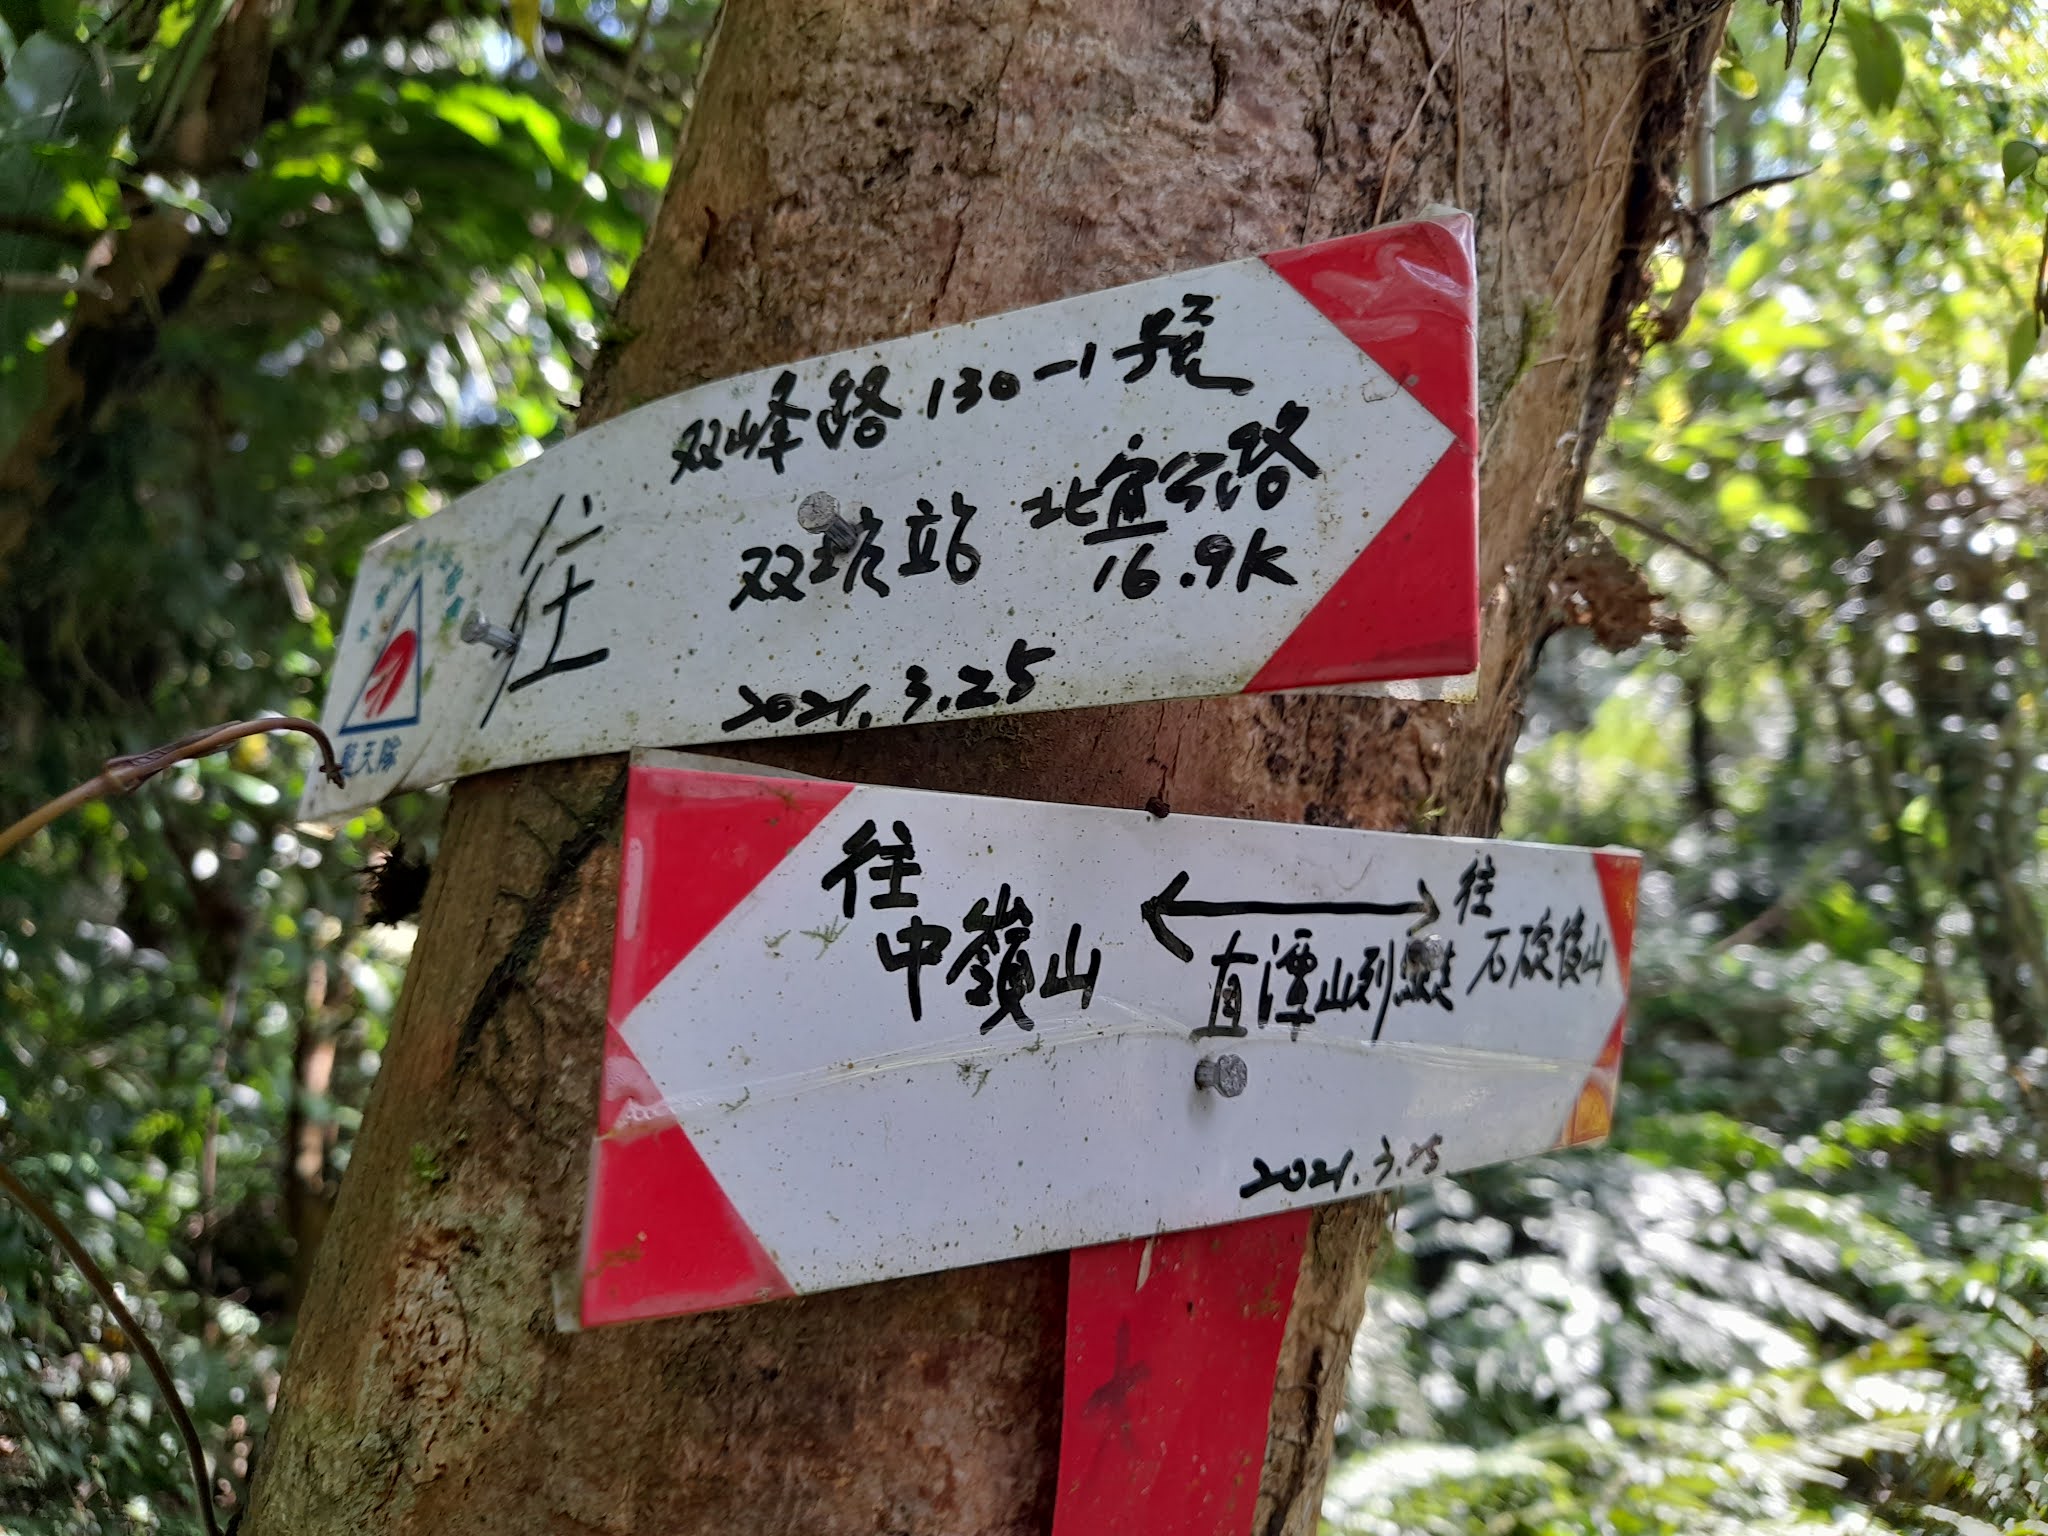 双峰路130-1號
往 双坑站 北宜公路
16.9K
2021.3.25
藍天隊
往 往
中嶺山 直潭山列縱走 石碇後山
2021.3.25
大